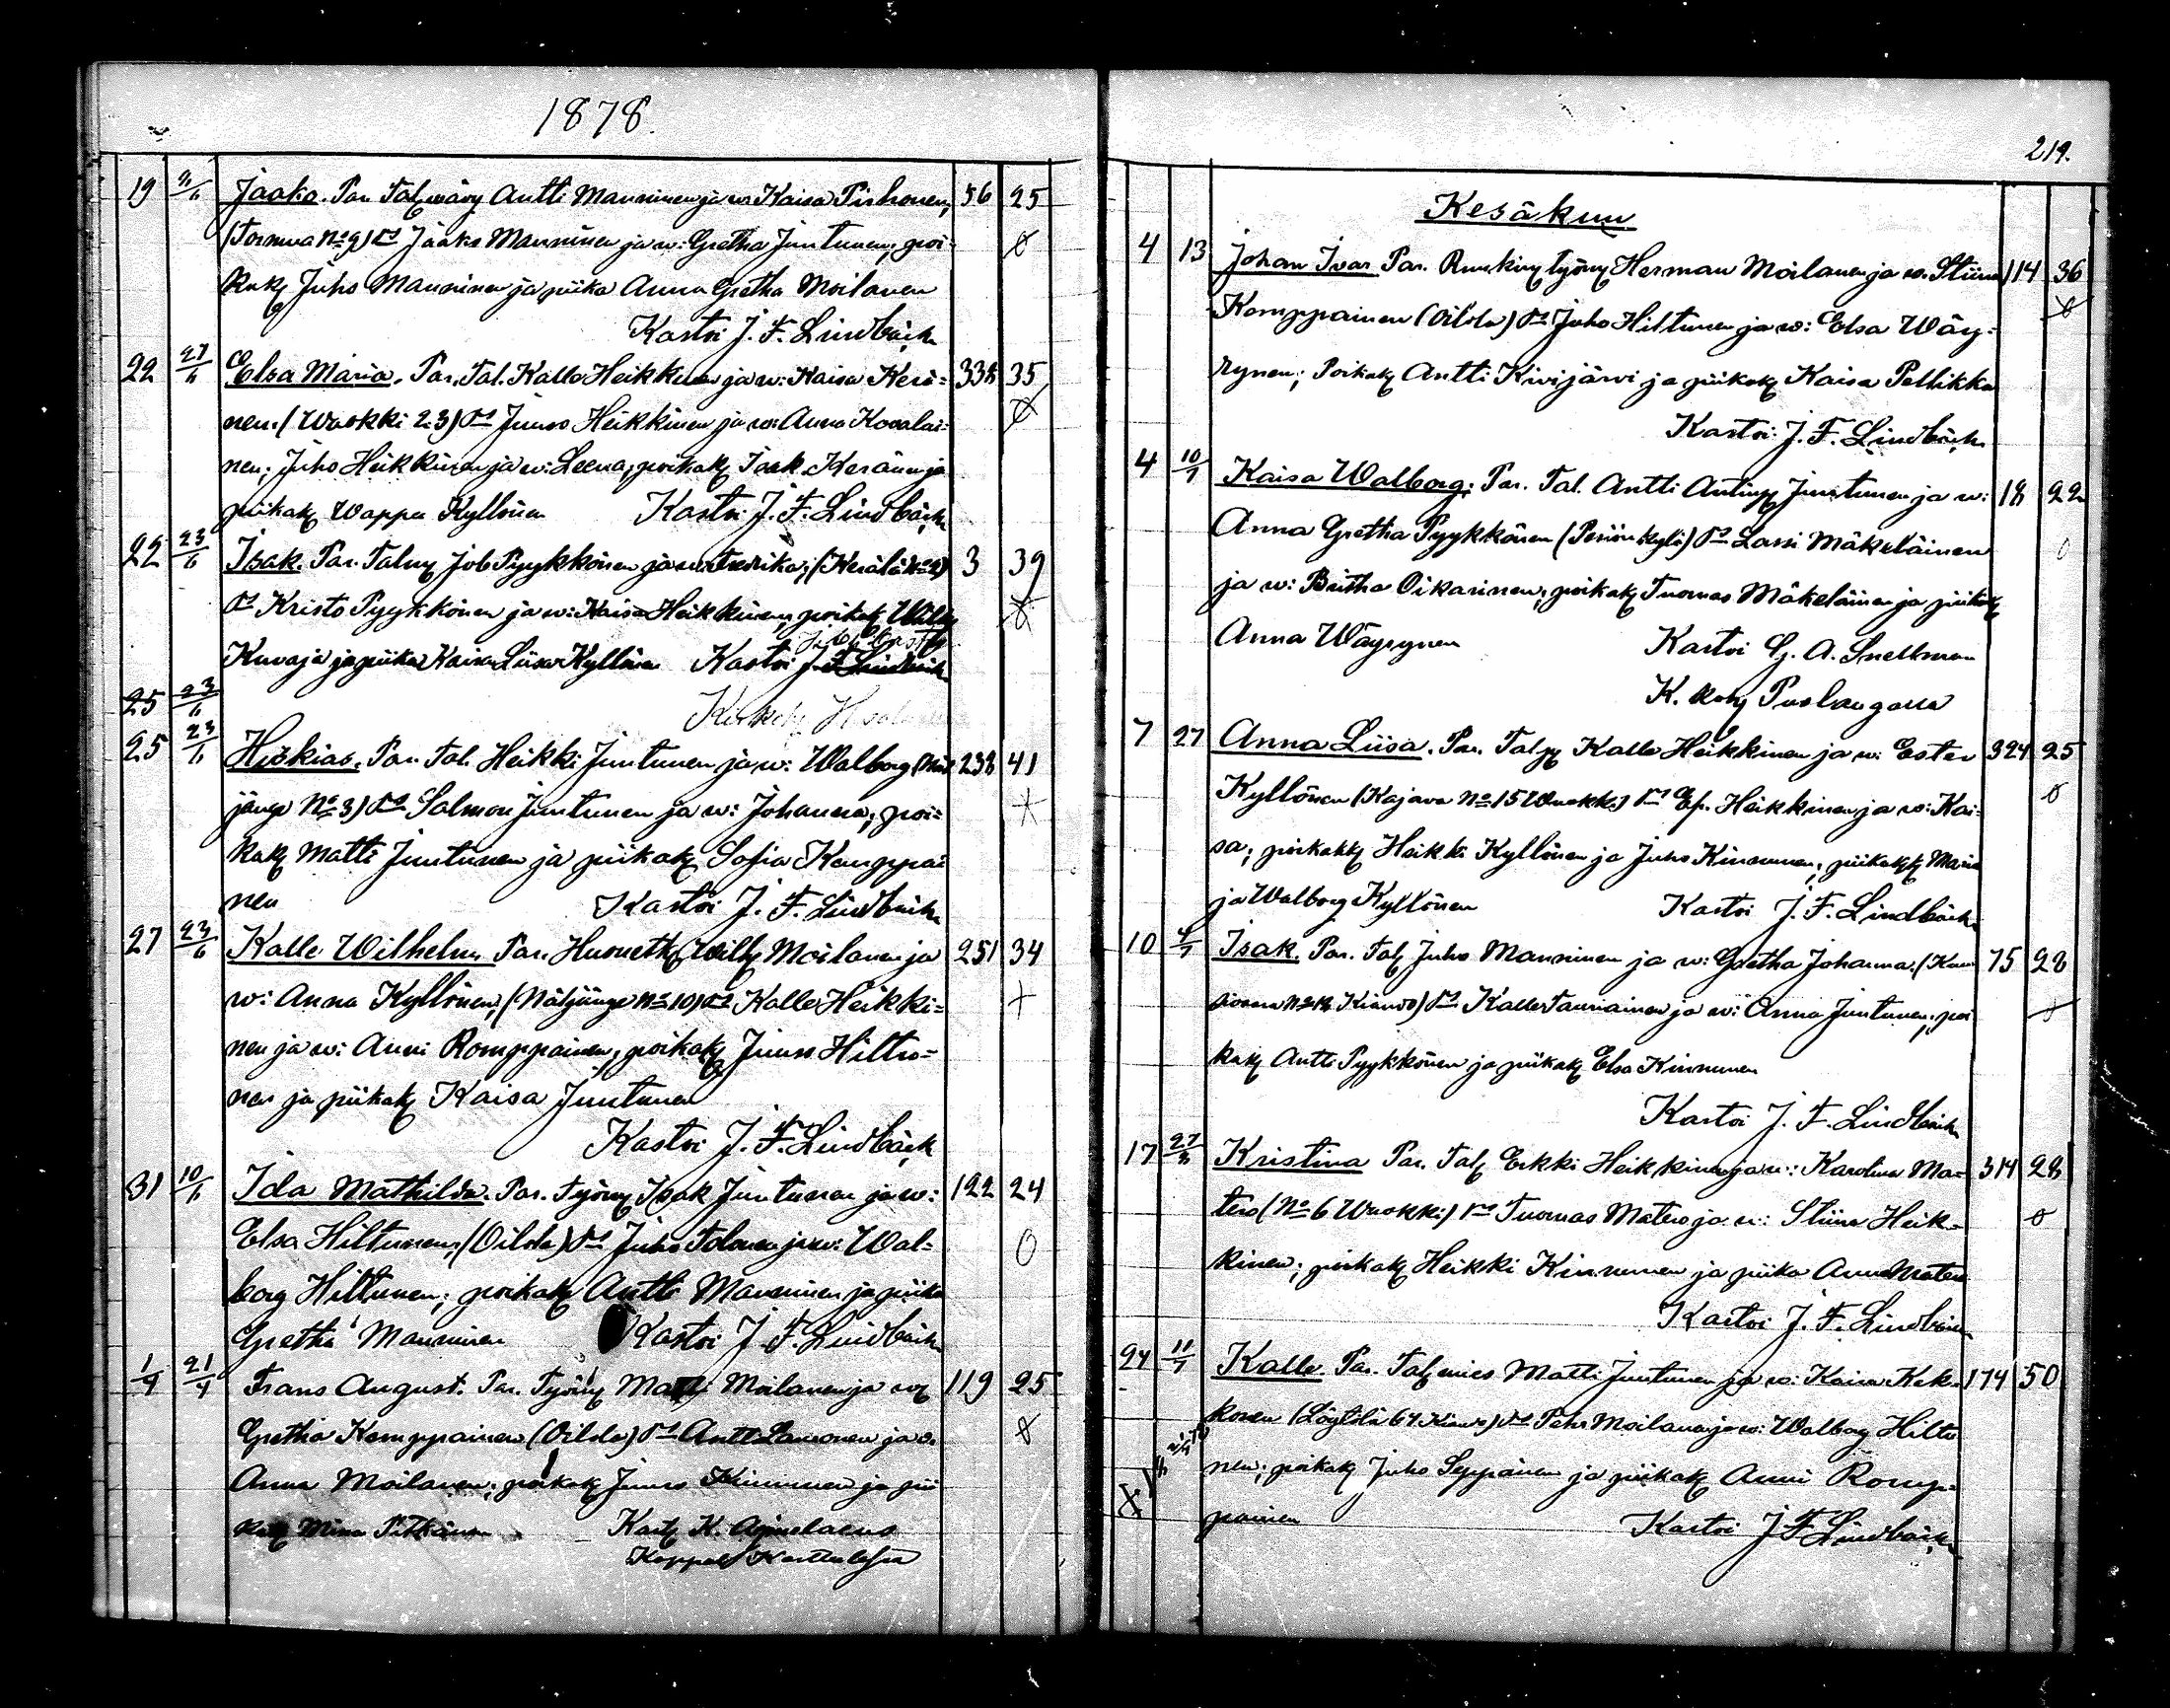 1878.
19 9/6 Jaako. Par. Tal. Antti Manninen ja w. Kaisa Pirhonen, 56 25
(Tormua No 9) Jaako Manninen ja w: Gretha Juntunen; poi-
kak Juho Manninen ja piika Anna Gretha Moilanen
Kastoi J. F. Lindbäck
22 27/6 Elsa Maria. Par. Tal. Kalle Heikkinen ja w: Kaisa Kerä= 338 35
nen. (Wuokki 23) Junno Heikkinen ja w: Anna Kovalai=
nen; Juho Heikkinen ja w: Leena, poikak Isak Keränen ja
piikak Wappu Kyllönen Kastoi J. F. Lindbäck
22 23/6 Isak. Par. Job Pyykkönen ja w: Fredrika; 3 39
Kristo Pyykkönen ja w: Kaisa Heikkinen, poikak
Kuvaja ja piika Kaisa Liisa Kyllönen Kastoi J. F. Lindbäck
25 23/6
25 23/6 Hiskias. Par. Tal. Heikki Juntunen ja w: Walborg 238 41
jänge No 3) Salmon Juntunen ja w: Johanna; poi=
kak Matti Juntunen ja piikak Sofia Kemppai
nen Kastoi J. F. Lindbäck
27 23/6 Kalle Wilhelm. Par. Huonetk Moilanen ja 251 34
w: Anna Kyllönen, (Näljänge No 10) Kalle Heikki=
nen ja w: Anni Romppainen, poikak Junno Hiltu=
nen ja piikak Kaisa Juntunen
Kastoi J. F. Lindbäck
31 10/6 Ida Mathilda. Par. Työm Isak Juntunen ja w: 122 24
Elsa Hiltunen, (Oilola) Juho Tolonen ja w: Wal=
borg Hiltunen; poikak Antti Manninen ja piika
Gretha Manninen Kastoi J. F. Lindbäck
1/4 21/4 Frans August. Par. Työm Moilanen ja w 119 25
Gretha Kemppainen (Oilola) Antti ja w.
Anna Moilanen; poikak Junno Kinnunen ja pii
kak Mina Pitkänen Kast K.
219.
Kesäkuu
4 13 Johan Ivar. Par. Ruukin työm Herman Moilanen ja w. Stiina 114 36
Komppainen (Oilola) Juho Hiltunen ja w: Elsa Wäy-
rynen; Poikak Antti Kivijärvi ja piikak Kaisa Pellikka
Kastoi: J. F. Lindbäck
4 10/7 Kaisa Walborg; Par. Tal. Antti Juntunen ja w: 18 22
Anna Gretha Pyykkönen Lassi Mäkeläinen
ja w: Britha Oikarinen; poikak Tuomas Mäkeläinen ja piikak
Anna Wäyrynen Kastoi G. A. Snellman
K.
7 27 Anna Liisa. Par. Kalle Heikkinen ja w: Ester 324 25
Kyllönen (Kajava No 15 Wuokki) Heikkinen ja w: Kai-
sa; poikakk Heikki Kyllönen ja Juho Kinnunen; piikakk Maria
ja Walborg Kyllönen Kastoi J. F. Lindbäck
10 Isak. Par. Tal Juho Manninen ja w: Gretha Johanna. 75 28
Kalle Tauriainen ja w: Anna Juntunen; poi
kak Antti Pyykkönen ja piikak Elsa Kinnunen
Kastoi J. F. Lindbäck
17 Kristina Par. Tal Erkki Heikkinen ja w: Karolina Ma= 314 28
tero (No 6 Wuokki) Tuomas Matero ja w: Stiina Heik-
kinen; poikak Heikki Kinnunen ja piika Anna Matero
Kastoi J. F. Lindbäck
24 11/7 Kalle. Par. Matti Juntunen ja w: Kaisa Kek- 174 50
konen Pehr Moilanen ja w: Walborg Hiltu
nen; poikak Juho Seppänen ja piikak Anni Romp=
painen Kastoi J. F. Lindbäck